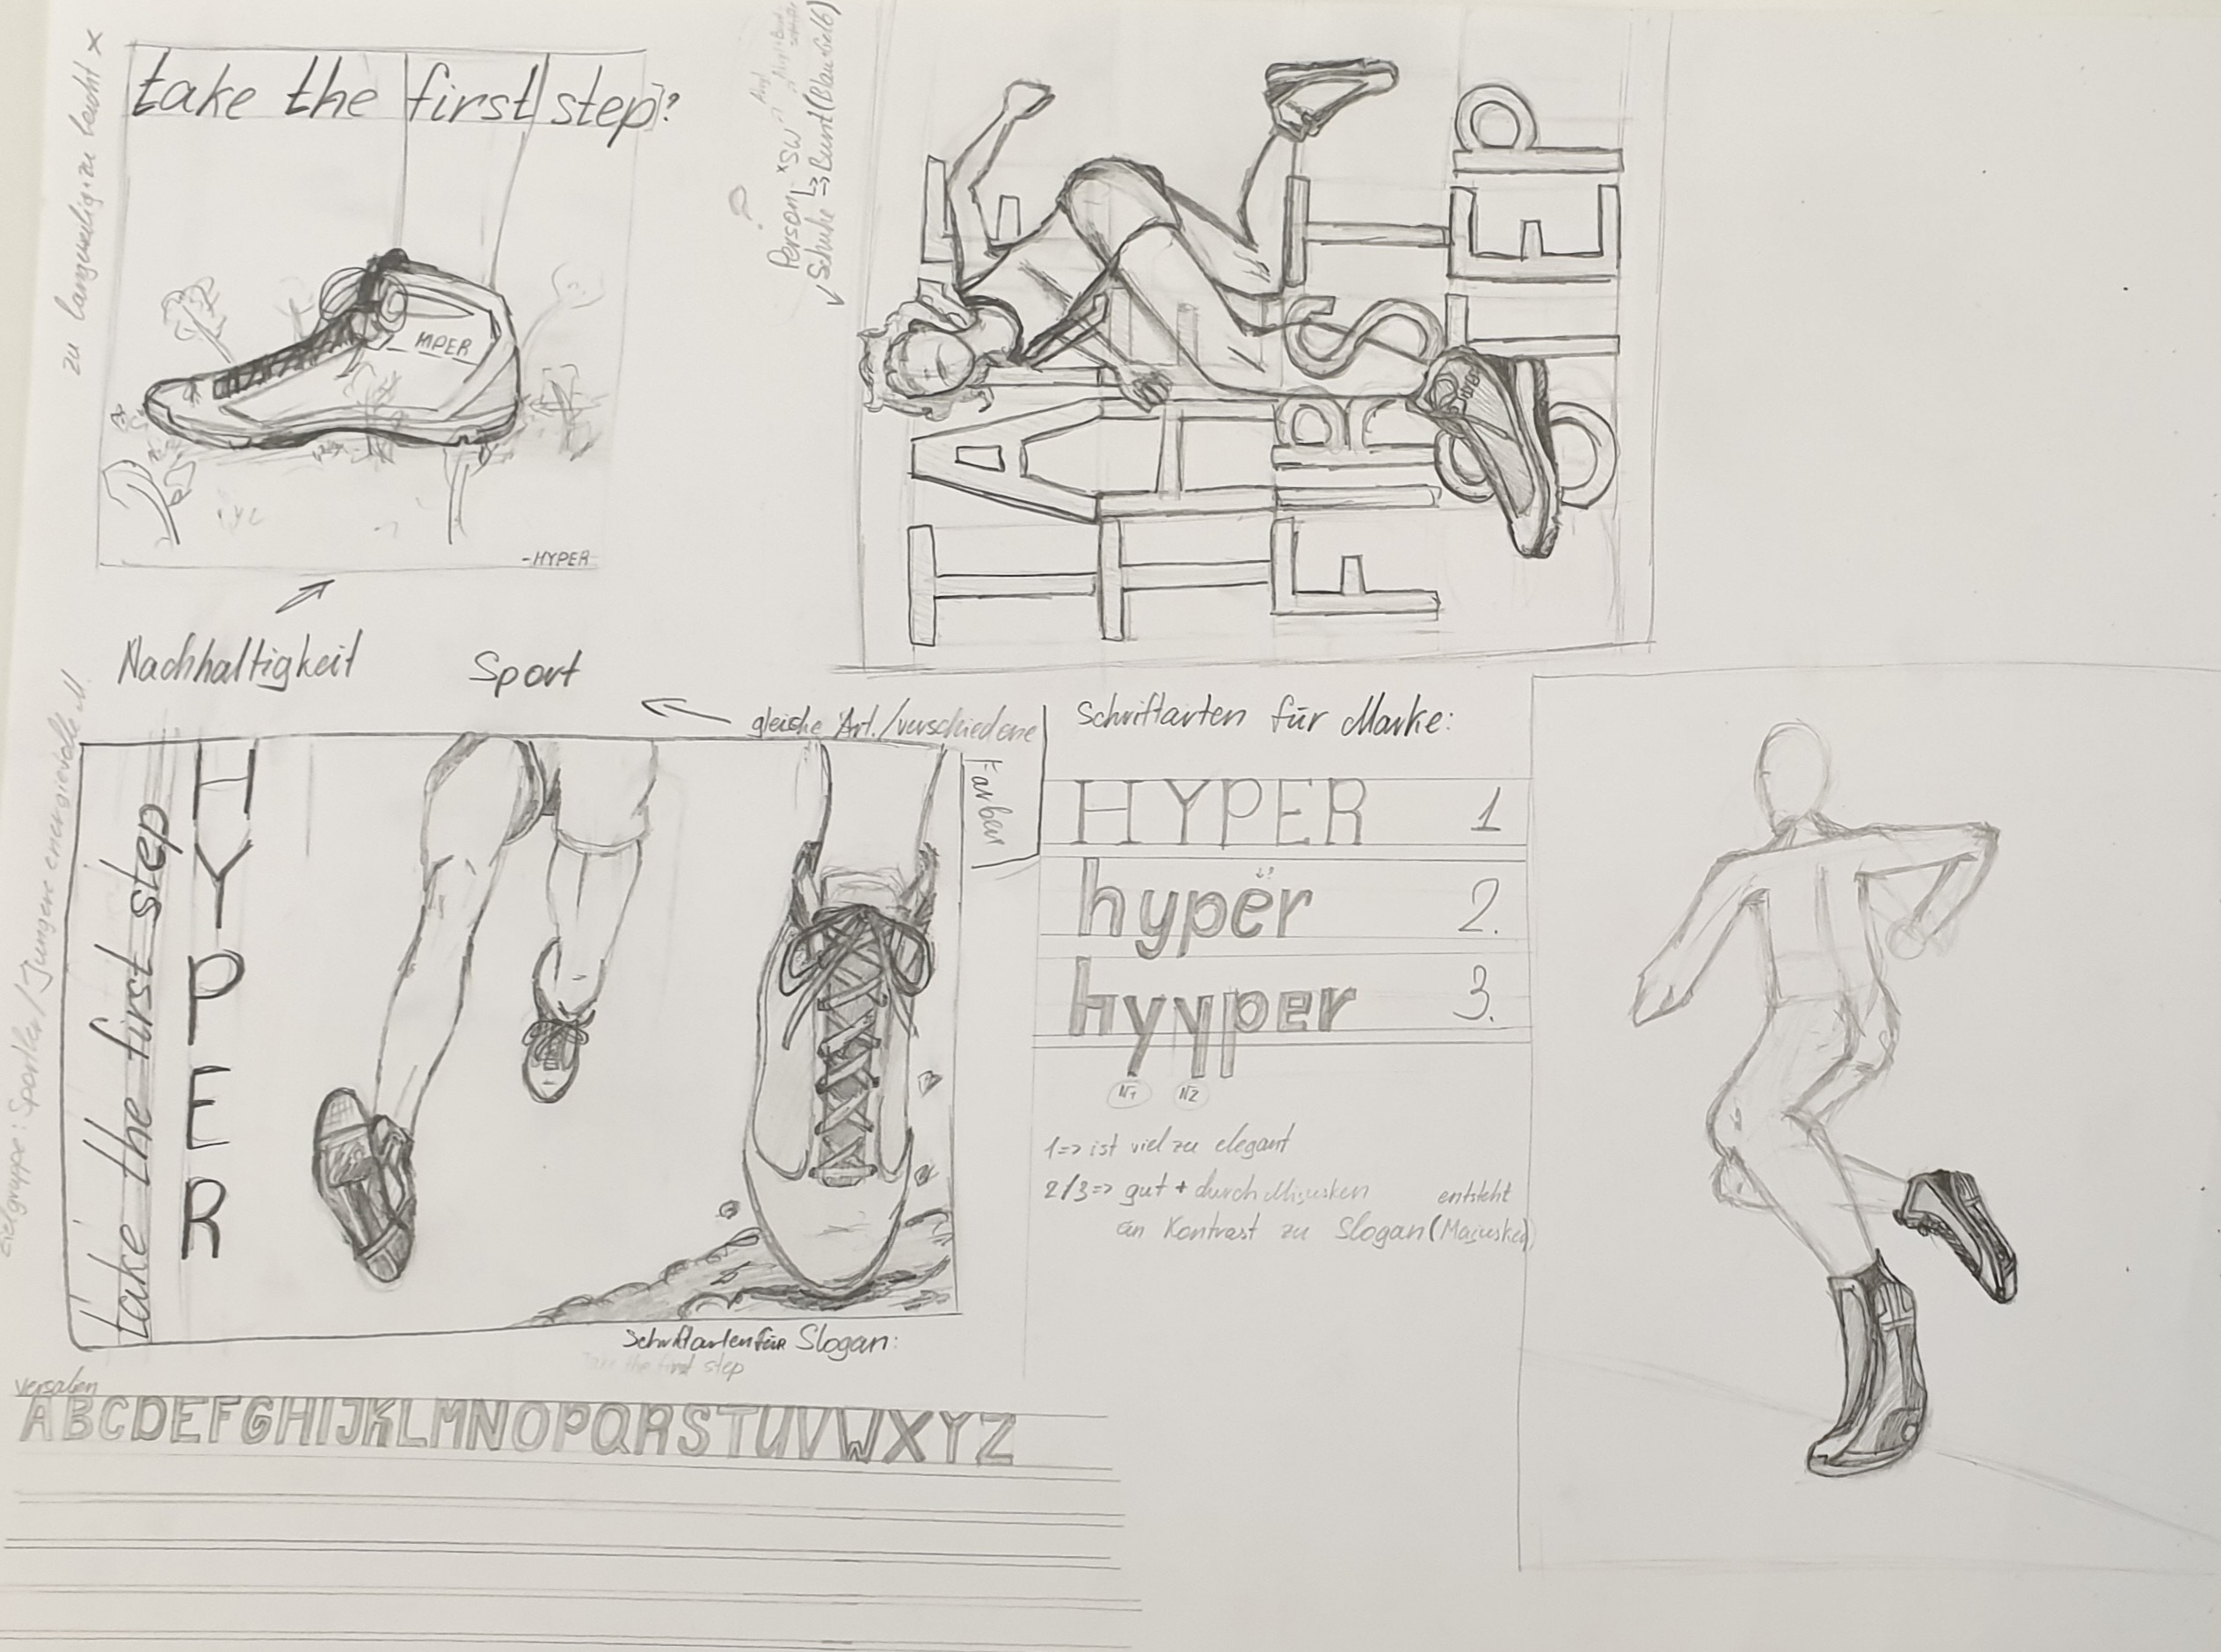 take the first step?
HYPER
-HYPER
zu langweilig/zu leicht x
Nachhaltigkeit
Sport
?
Person x SW
Schuhe => Bunt (Blau Gelb)
TAKE
THE
FIRST
STEP
gleiche Art./verschiedene
Farben
Zielgruppe: Sportler/Jungene energievolle M.
take the first step
HYPER
Schriftarten für Marke:
HYPER 1
hyper 2.
hyyper 3.
N1 N2
1=> ist viel zu elegant
2/3=> gut + durch Minusken entsteht
ein Kontrast zu Slogan (Majusken)
Schriftarten für Slogan:
Take the first step
versalien
ABCDEFGHIJKLMNOPQRSTUVWXYZ